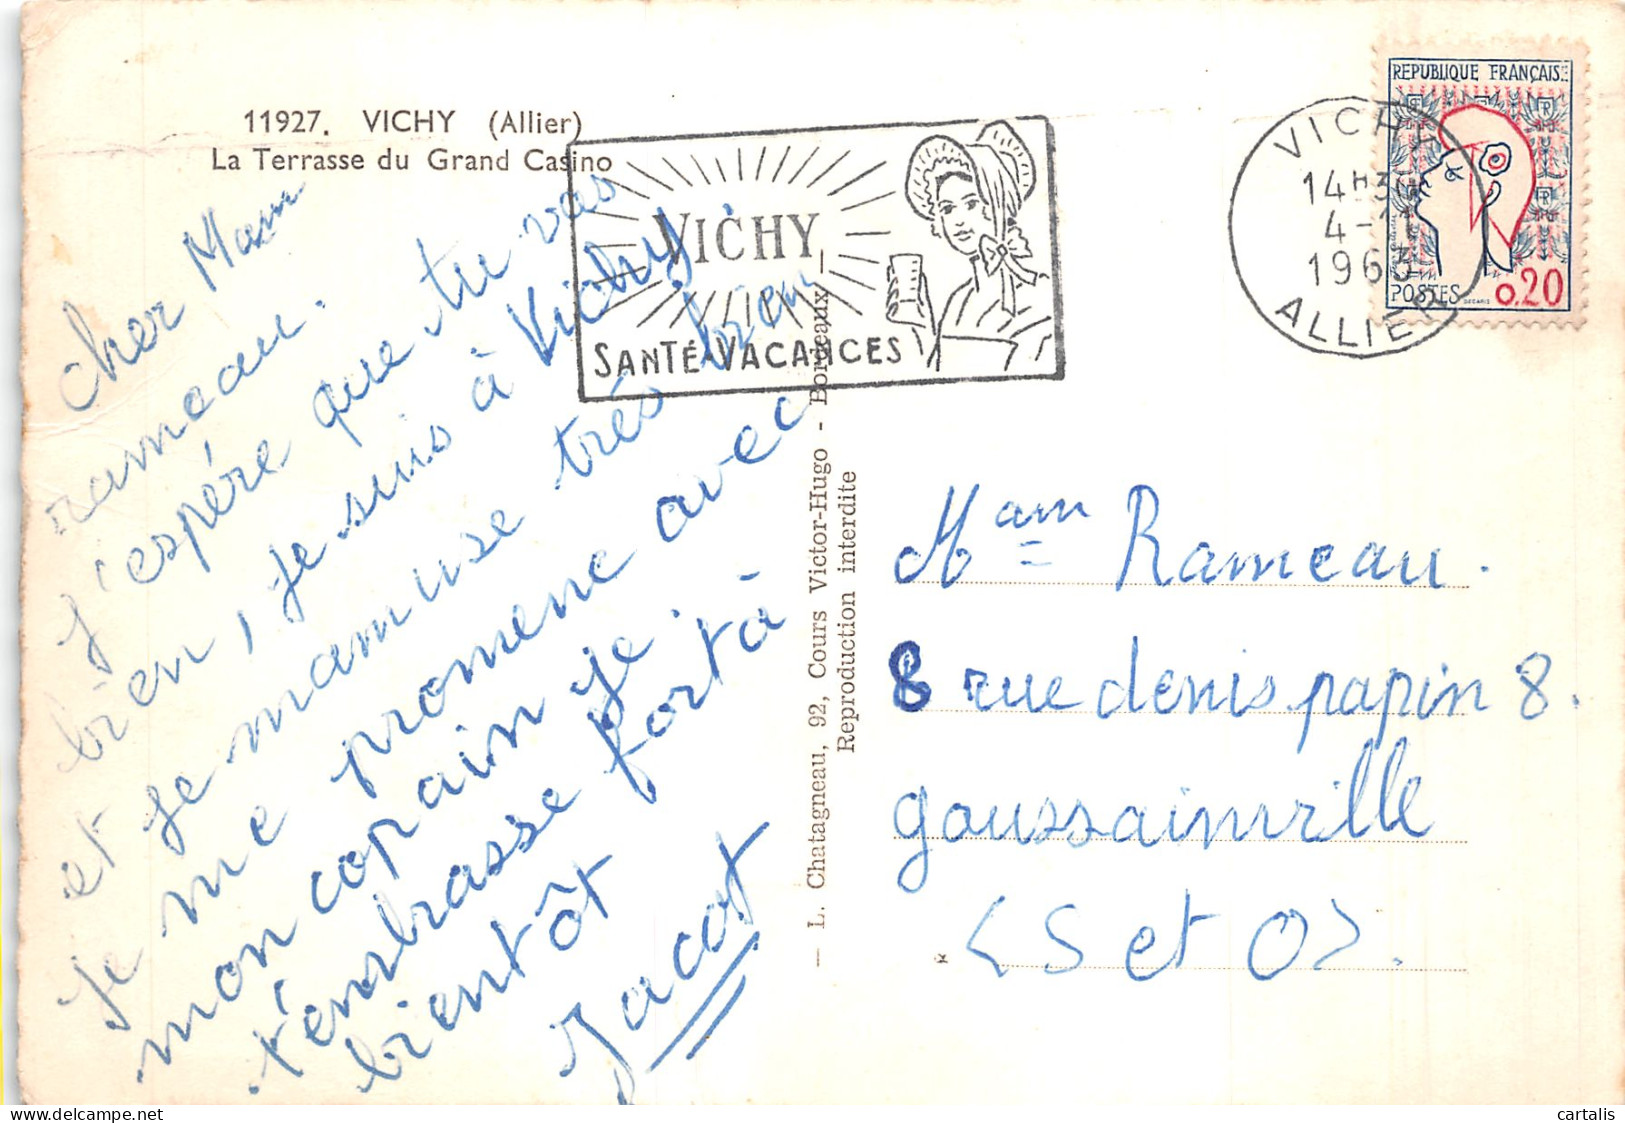 11927. VICHY (Allier)
La Terrasse du Grand Casino
cher Mam
rameau.
j'espére que tu vas
bien, je suis à Vichy
et je mamuse trés bien
je me promene avec
mon copain je
t'embrasse fort à
bientôt
Jacot
VICHY
SANTÉ-VACANCES
VICHY
14H3
4-
196
ALLIER
REPUBLIQUE FRANÇAISE
POSTES
DECARIS
0.20
— L. Chatagneau, 92, Cours Victor-Hugo - Bordeaux —
Reproduction interdite
Mam Rameau.
8 rue denis papin 8.
goussainville
<S et O>.
cartalis